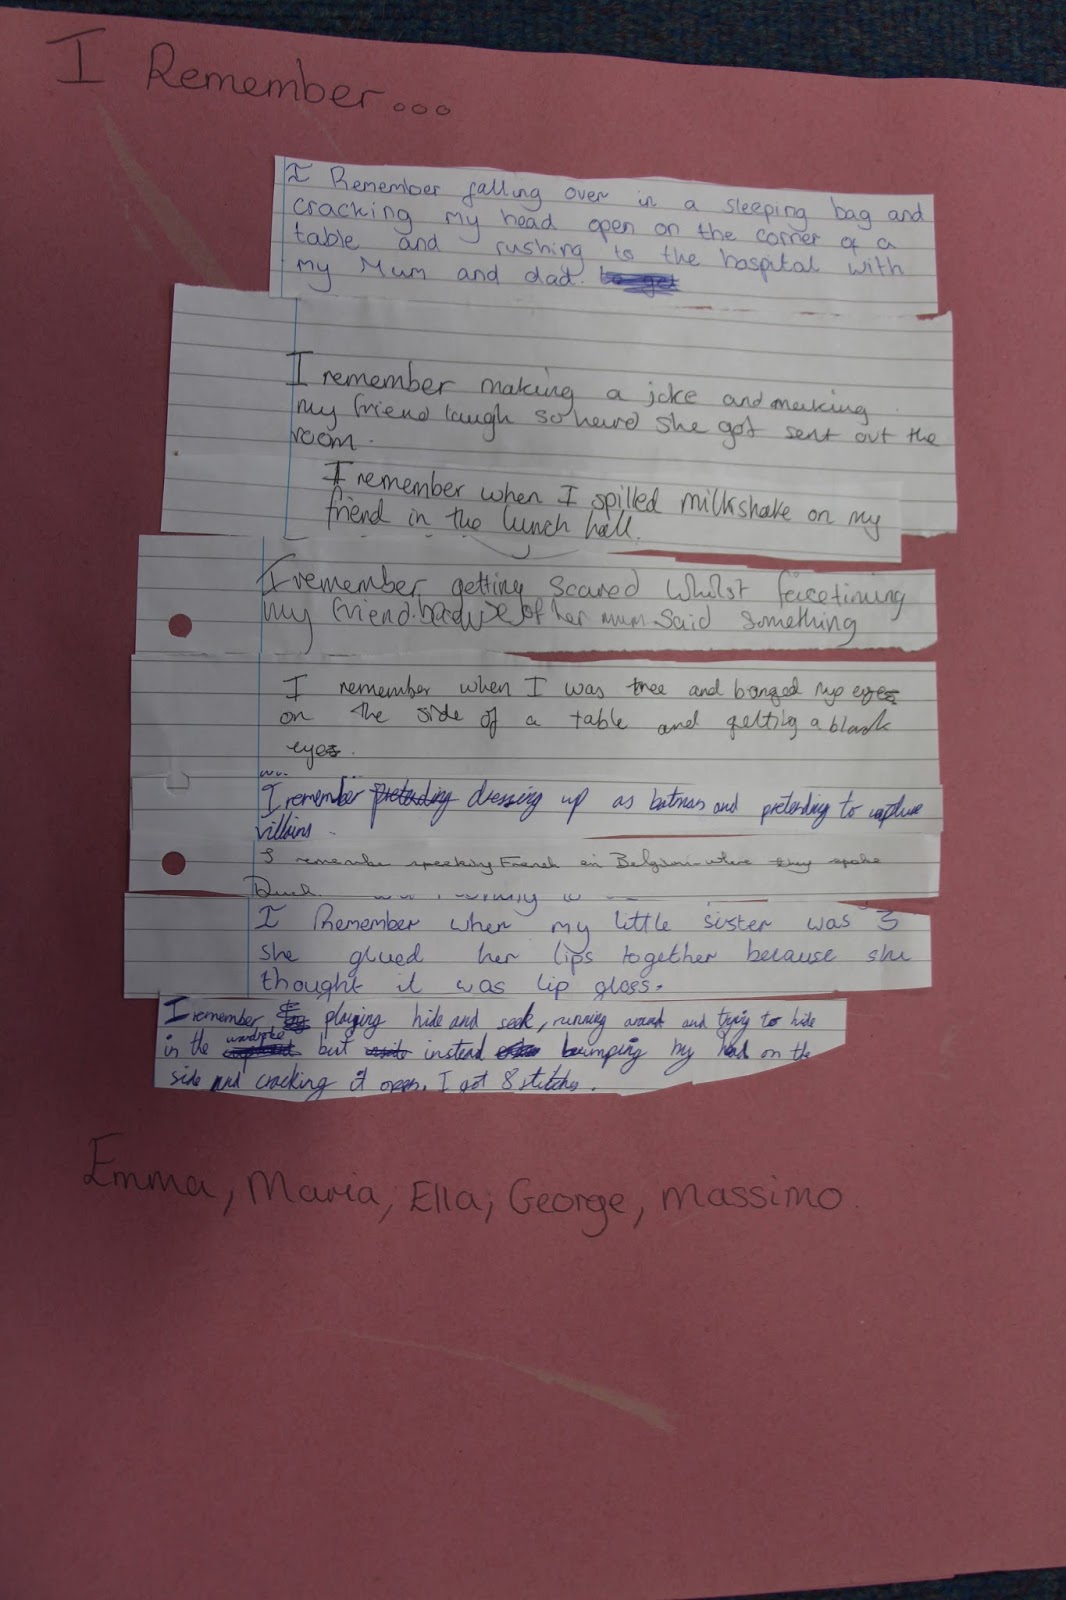 I Remember...
I Remember falling over in a sleeping bag and
cracking my head open on the corner of a
table and rushing to the hospital with
my Mum and dad.
I remember making a joke and making
my friend laugh so hard she got sent out the
room.
I remember when I spilled milkshake on my
friend in the lunch hall.
I remember getting scared whilst facetiming
my friend because of her mum said something
I remember when I was tree and banged my eye
on the side of a table and getting a black
eye.
I remember pretending dressing up as batman and pretending to capture
villains.
I remember speeking French in Belgium where they spoke
I Remember when my little sister was 3
she glued her lips together because she
thought it was lip gloss.
I remember playing hide and seek, running around and trying to hide
in the wardrobe but instead bumping my head on the
side and cracking it open. I got 8 stitches.
Emma, Maria, Ella, George, Massimo.